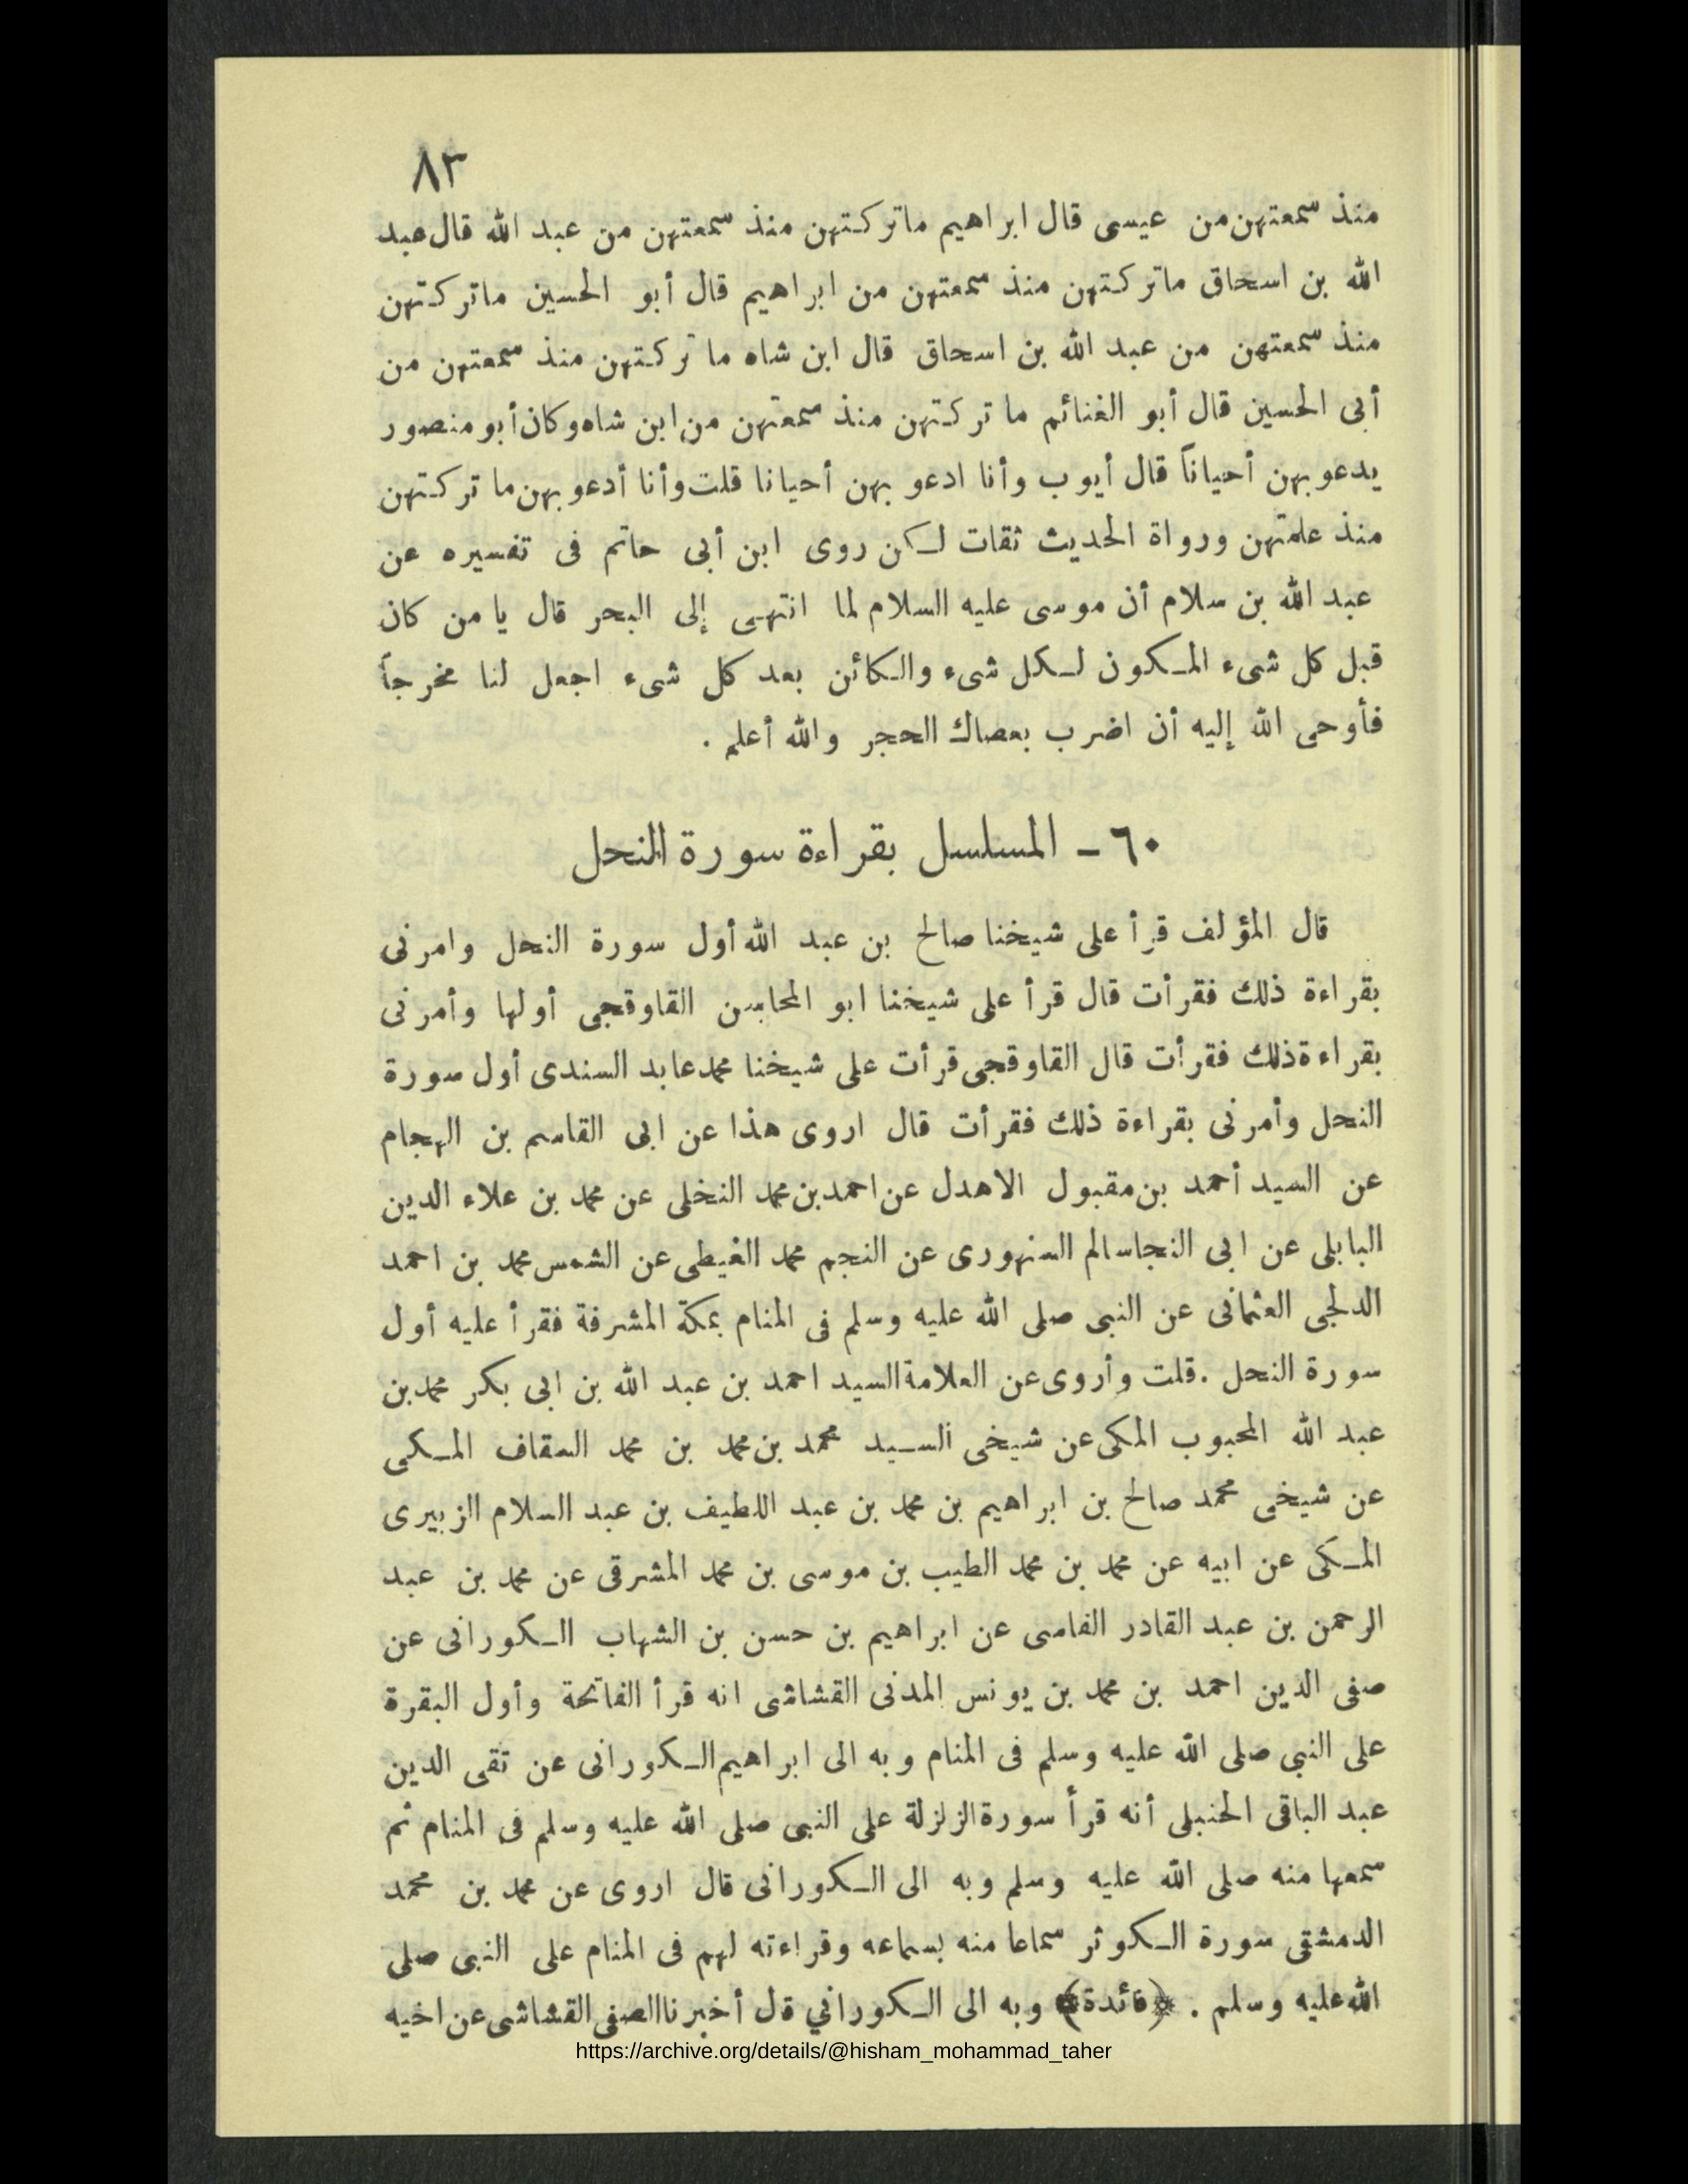 ٨٣
منذ سمعتهن من عيسى قال ابراهيم ماتركتهن منذ سمعتهن من عبد الله قال عبد
الله بن اسحاق ماتركتهن منذ سمعتهن من ابراهيم قال أبو الحسين ماتركتهن
منذ سمعتهن من عبد الله بن اسحاق قال ابن شاه ما تركتهن منذ سمعتهن من
أبى الحسين قال أبو الغنائم ما تركتهن منذ سمعتهن من ابن شاه وكان أبو منصور
يدعو بهن أحياناً قال أيوب وأنا ادعو بهن أحيانا قلت وأنا أدعو بهن ما تركتهن
منذ علمتهن ورواة الحديث ثقات لكن روى ابن أبى حاتم فى تفسيره عن
عبد الله بن سلام أن موسى عليه السلام لما انتهى إلى البحر قال يا من كان
قبل كل شىء المكون لكل شىء والكائن بعد كل شىء اجعل لنا مخرجاً
فأوحى الله إليه أن اضرب بعصاك الحجر والله أعلم .
٦٠ - المسلسل بقراءة سورة النحل
قال المؤلف قرأ على شيخنا صالح بن عبد الله أول سورة النحل وامرنى
بقراءة ذلك فقرأت قال قرأ على شيخنا ابو المحاسن القاوقجى أولها وأمرنى
بقراءة ذلك فقرأت قال القاوقجى قرأت على شيخنا محمد عابد السندى أول سورة
النحل وأمرنى بقراءة ذلك فقرأت قال اروى هذا عن ابى القاسم بن الهجام
عن السيد أحمد بن مقبول الاهدل عن احمد بن محمد النخلى عن محمد بن علاء الدين
البابلى عن ابى النجا سالم السنهورى عن النجم محمد الغيطى عن الشمس محمد بن احمد
الدلجى العثمانى عن النبى صلى الله عليه وسلم فى المنام بمكة المشرفة فقرأ عليه أول
سورة النحل . قلت وأروى عن العلامة السيد احمد بن عبد الله بن ابى بكر محمد بن
عبد الله المحبوب المكى عن شيخى السيد محمد بن محمد بن محمد السقاف المكى
عن شيخى محمد صالح بن ابراهيم بن محمد بن عبد اللطيف بن عبد السلام الزبيرى
المكى عن ابيه عن محمد بن محمد الطيب بن موسى بن محمد المشرقى عن محمد بن عبد
الرحمن بن عبد القادر الفاسى عن ابراهيم بن حسن بن الشهاب الكورانى عن
صفى الدين احمد بن محمد بن يونس المدنى القشاشى انه قرأ الفاتحة وأول البقرة
على النبى صلى الله عليه وسلم فى المنام وبه الى ابراهيم الكورانى عن تقى الدين
عبد الباقى الحنبلى أنه قرأ سورة الزلزلة على النبى صلى الله عليه وسلم فى المنام ثم
سمعها منه صلى الله عليه وسلم وبه الى الكورانى قال اروى عن محمد بن محمد
الدمشقى سورة الكوثر سماعا منه بسماعه وقراءته لهم فى المنام على النبى صلى
الله عليه وسلم . ﴿فائدة﴾ وبه الى الكوراني قل أخبرنا الصفى القشاشى عن اخيه
https://archive.org/details/@hisham_mohammad_taher